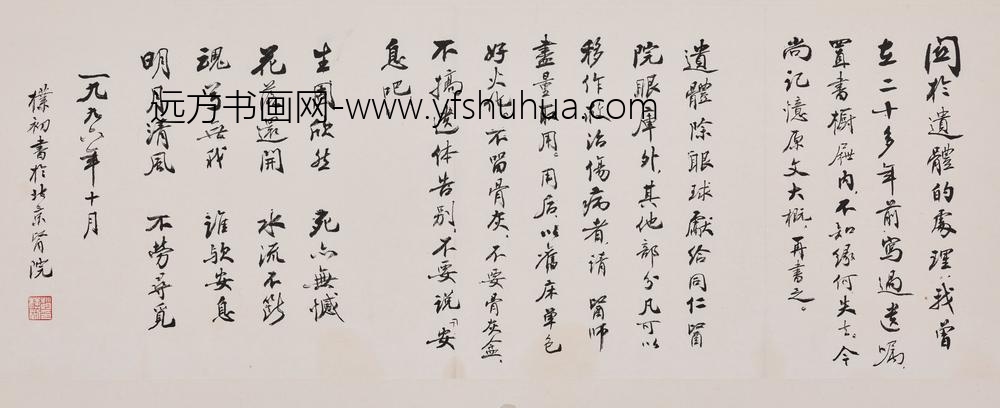 關於遺體的處理，我曾
在二十多年前寫過遺囑，
置書櫥屜内，不知緣何失去。今
尚記憶原文大概，再書之。
遺體除眼球獻給同仁醫
院眼庫外，其他部分凡可以
移作救治傷病者，請醫師
盡量取用。用后以舊床單包
好火化。不留骨灰，不要骨灰盒，
不搞遺体告别，不要説「安
息吧
生固欣然 死亦無憾
花落還開 水流不斷
魂兮無我 誰欤安息
明月清風 不勞尋覓
一九九六年十月
樸初書於北京醫院
远方书画网-www.yfshuhua.com